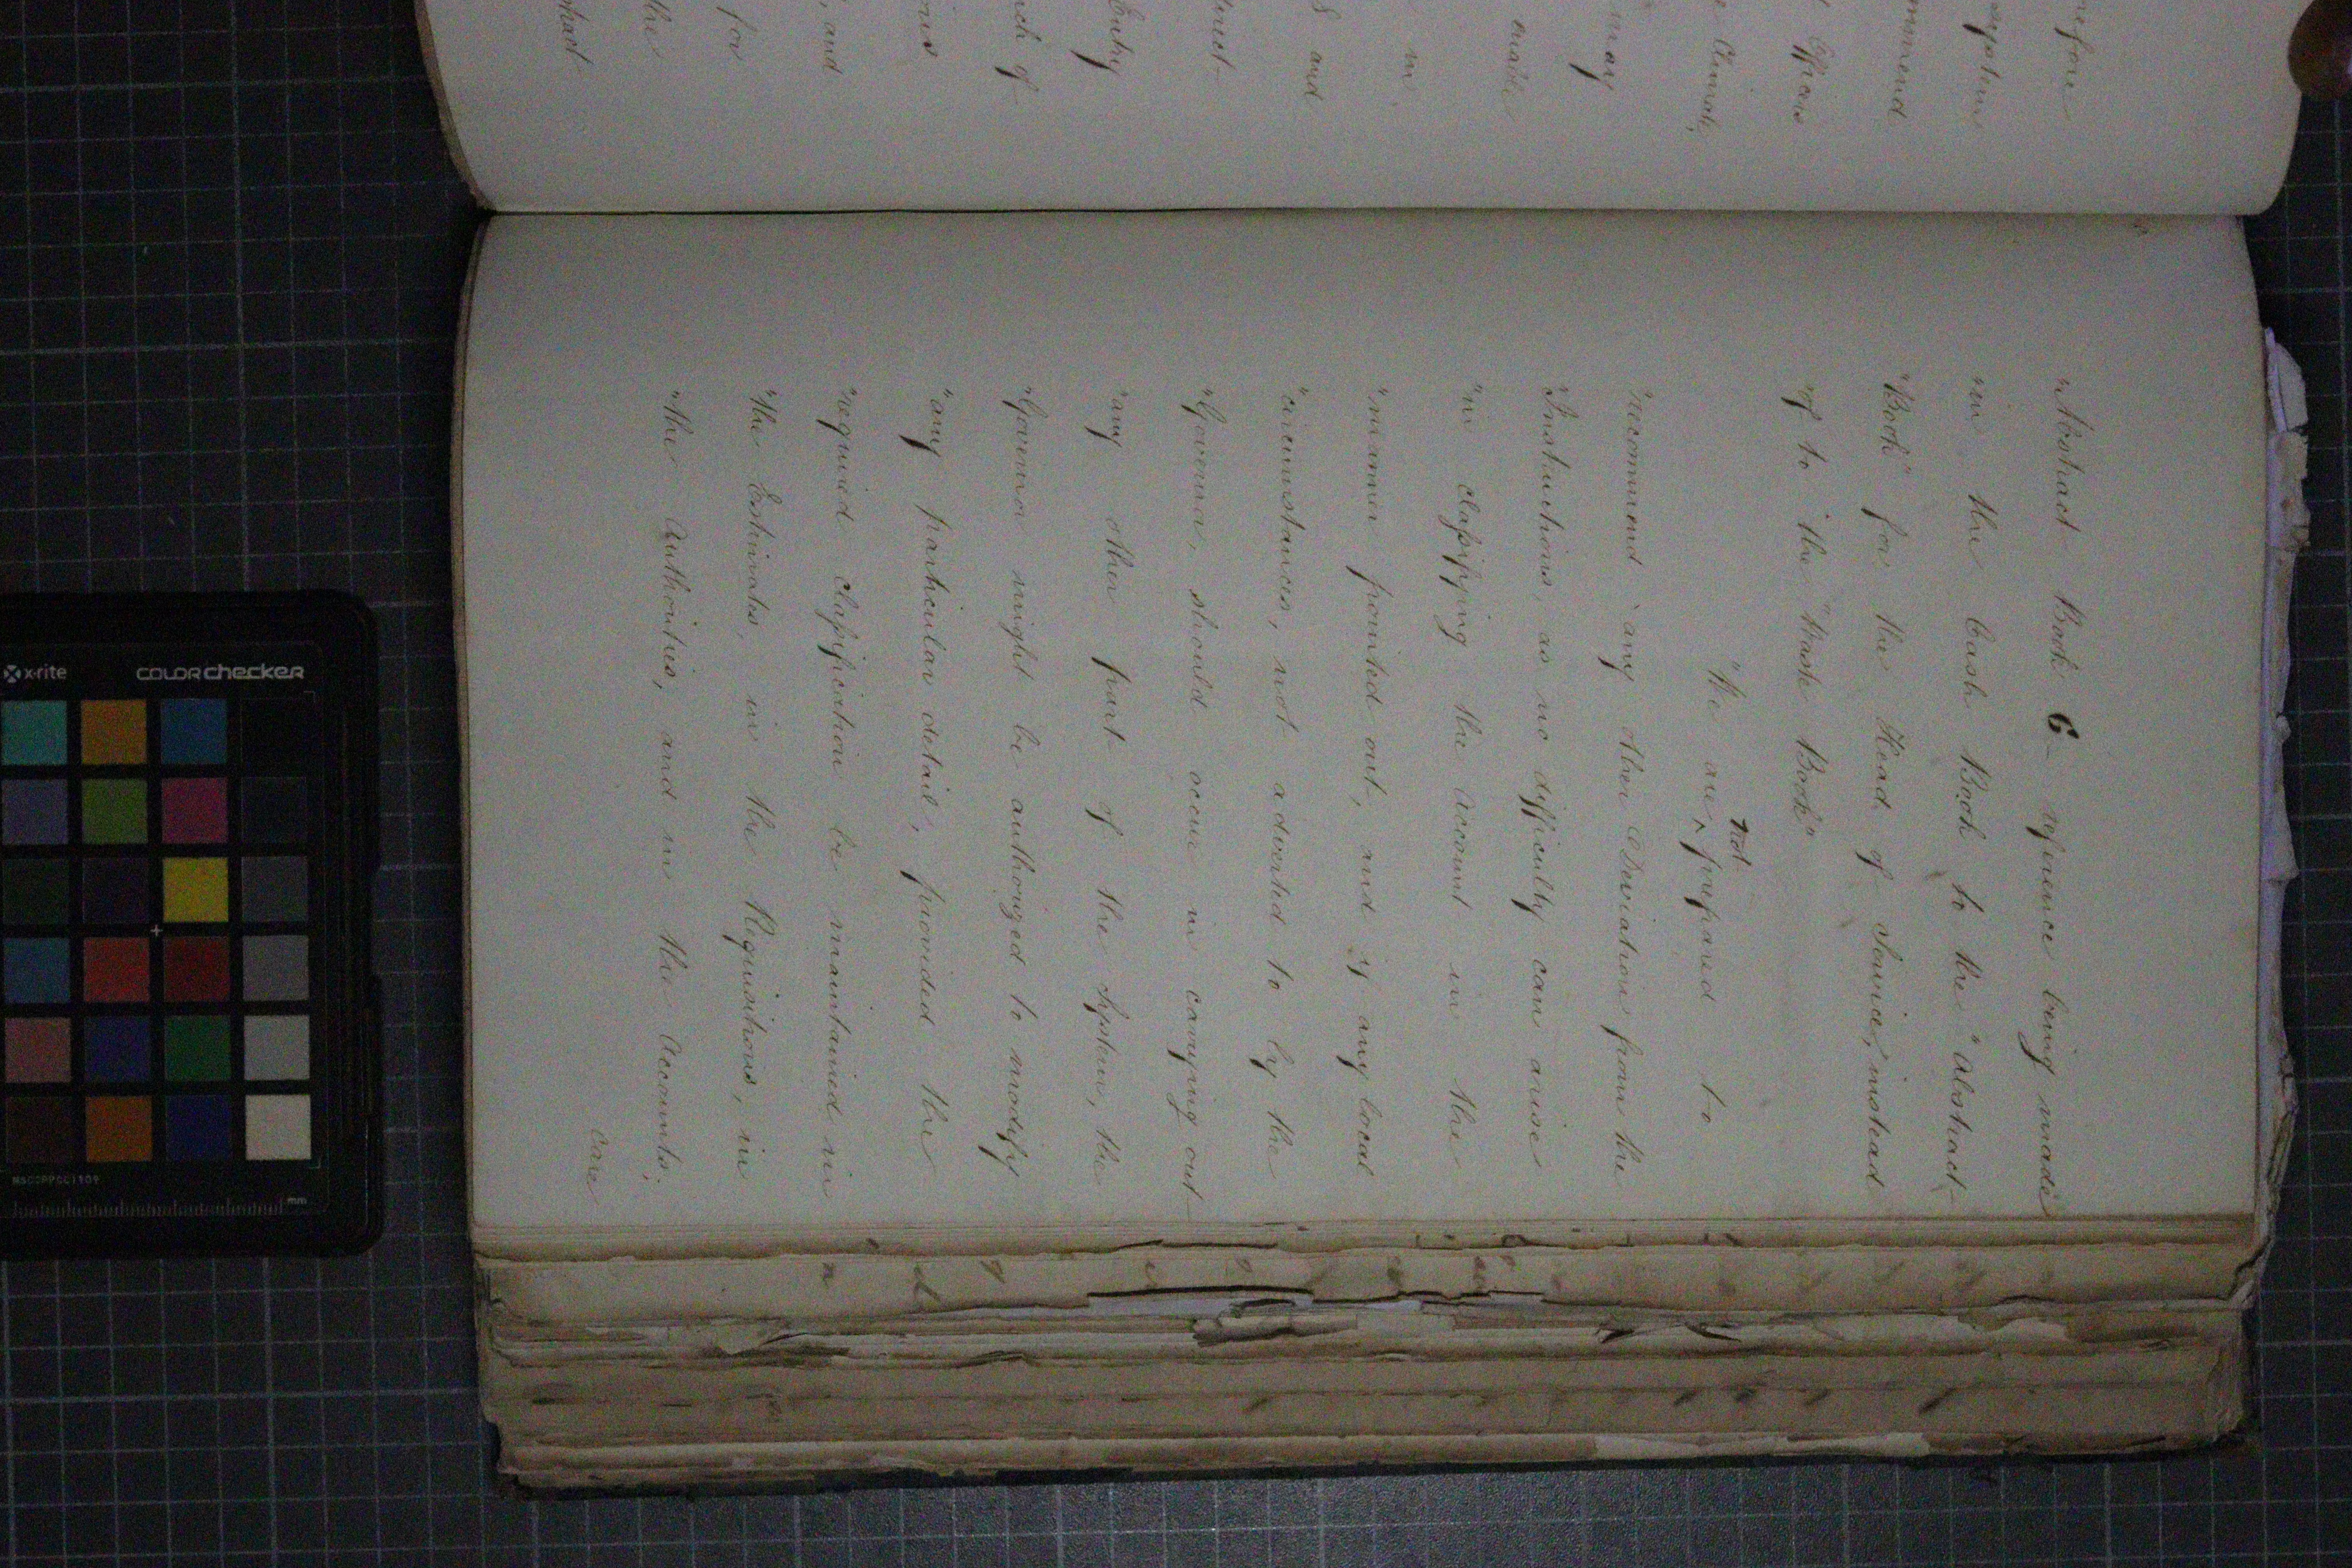 before
mmend
Officers
Climate,
may
enable
in
S and
Entry
ch of
ons
, and
for
the
"Abstract Book C - reference being made
"in the Cash Book to the "Abstract
"Book" for the Head of Service, instead
"of to the "Waste Book"
"We are not prepared to
"recommend any other Deviation from the
"Instructions, as no difficulty can arise
"in classifying the account in the
"manner pointed out, and if any local
"circumstances, not adverted to by the
"Governor, should occur in carrying out
"any other part of the System, the
"Governor might be authorized to modify
"any particular detail, provided the
"required classification be maintained in
"the Estimates, in the Requisitions, in
"the Authorities, and in the Accounts.
Care
x-rite
COLORchecker
mm